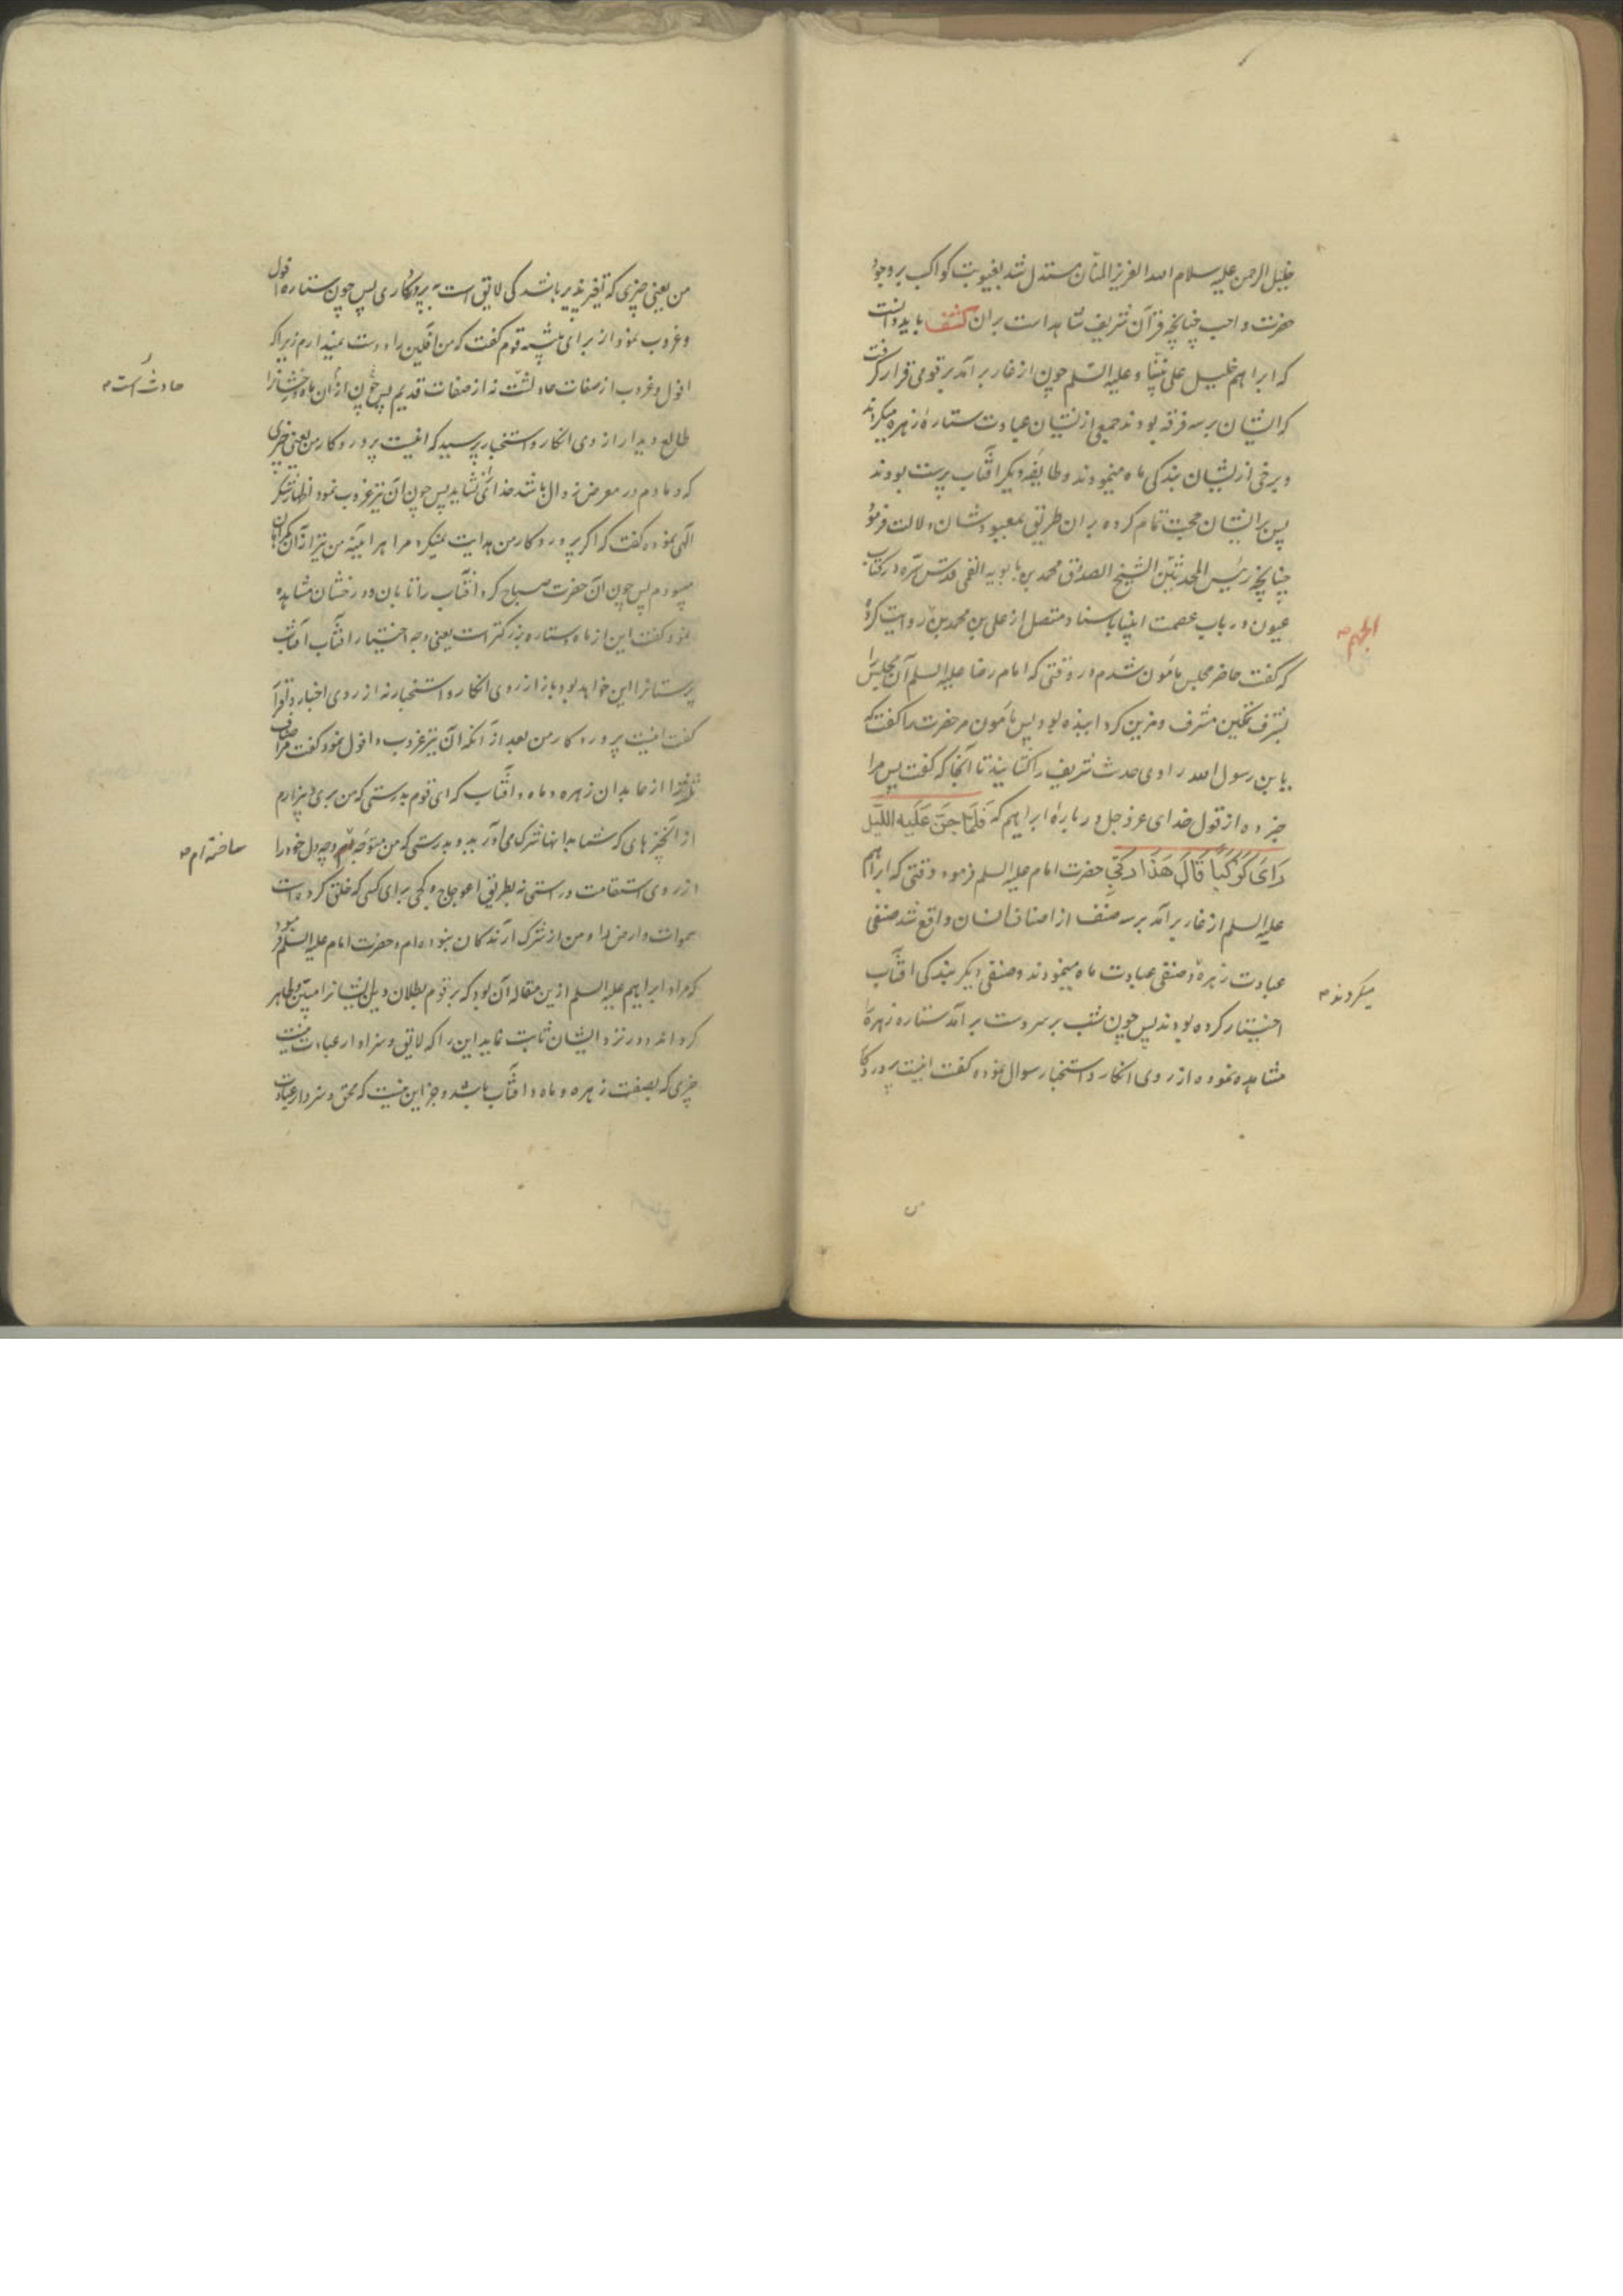 خلیل الرحمن علیه سلام الله العزیز المنان مستدل شد بغیبوبت کواکب بر وجود
حضرت واجب چنانچه قرآن شریف شاهد است بران کشف باید دانست
که ابراهیم خلیل علی نبینا و علیه السلم چون از غار برآمد بر قومی قرار گرفت
که ایشان بر سه فرقه بودند جمعی از یشان عبادت ستارهٔ زهره میکردند
و برخی از یشان بندکی ماه مینمودند و طایفهٔ دیکر افتاب پرست بودند
پس بر ایشان حجت تمام کرده بران طریق بمعبودشان دلالت فرمود
چنانچه رئیس المحدثین الشیخ الصدوق محمد بن بابویه القمی قدس سره در کتاب
عیون در باب عصمت انبیا باسناد متصل از علی بن محمد بن روایت کرده
الجهم
که گفت حاضر مجلس مامون شدم در وقتی که امام رضا علیه السلم آن مجلس را
بشرف تمکین مشرف و مزین کردانیده بود پس مامون مر حضرت را گفت که
یا بن رسول الله راوی حدث شریف را کشانید تا آنجا که گفت پس مرا
خبر ده از قول خدای عز و جل در بارهٔ ابراهیم که فَلَمّا جَنَّ عَلَیه اللَّیل
رَای کَوکَباً قالَ هَذا رَبّی حضرت امام علیه السلم فرمود وقتی که ابراهیم
علیه السلم از غار برآمد بر سه صنف از اصناف انسان واقع شد صنفی
عبادت زهرهٔ و صنفی عبادت ماه مینمودند و صنفی دیکر بندکی افتاب
میکردند
اختیار کرده بودند پس چون شب بر سر دست برآمد ستاره زهره را
مشاهده نموده از روی انکار و استخبار سوال نموده کفت اینست پروردکار
من یعنی چیزی که تغیر پذیر باشد کی لایق است به پروردکاری پس چون ستاره افول
و غروب نمود از برای تنبیه قوم کفت که من آفلین را دوست نمیدارم زیرا که
افول و غروب از صفات حادثست نه از صفات قدیم پس چون از آن ماه رخشانرا
حادث است
طالع دید از روی انکار و استخبار پرسید که اینست پروردکار من یعنی چیزی
که دمادم در معرض زوال باشد خدائی را نشاید پس چون آن نیز غروب نمود اظهار شکر
الهی نموده کفت که اکر پروردکار من هدایت نمیکرد مرا هر اینه من نیز از آن کمراهان
میبودم پس چون آن حضرت صباح کرد افتاب را تابان و درخشان مشاهده
نمود کفت این از ماه و ستاره بزرکتر است یعنی وجه اختیار افتاب آفتاب
پرستانرا این خواهد بود باز از روی انکار و استخبار نه از روی اخبار و اقرار
کفت اینست پروردکار من بعد از آنکه آن نیز غروب و افول نمود کفت مر اصناف
ثلثه را از عابدان زهره و ماه و افتاب که ای قوم بدرستی که من بری و بیزارم
از آنچیزهای که شما بدانها شرک می آورید و بدرستی که من متوجه وجه دل خود را
ساخته ام
از روی استقامت و راستی نه بطریق اعوجاج و کجی برای کسی که خلق کرده است
سموات و ارض را و من از شرک آرندکان نبوده ام و حضرت امام علیه السلم فرمود
که مراد ابراهیم علیه السلم ازین مقاله آن بود که بر قوم بطلان دین ایشانرا مبین و ظاهر
کرداند و در نزد ایشان ثابت نماید این را که لایق و سزاوار عبادت نیست
چیزی که بصفت زهره و ماه و افتاب باشد و جز این نیست که محق و سزاوار عبادت